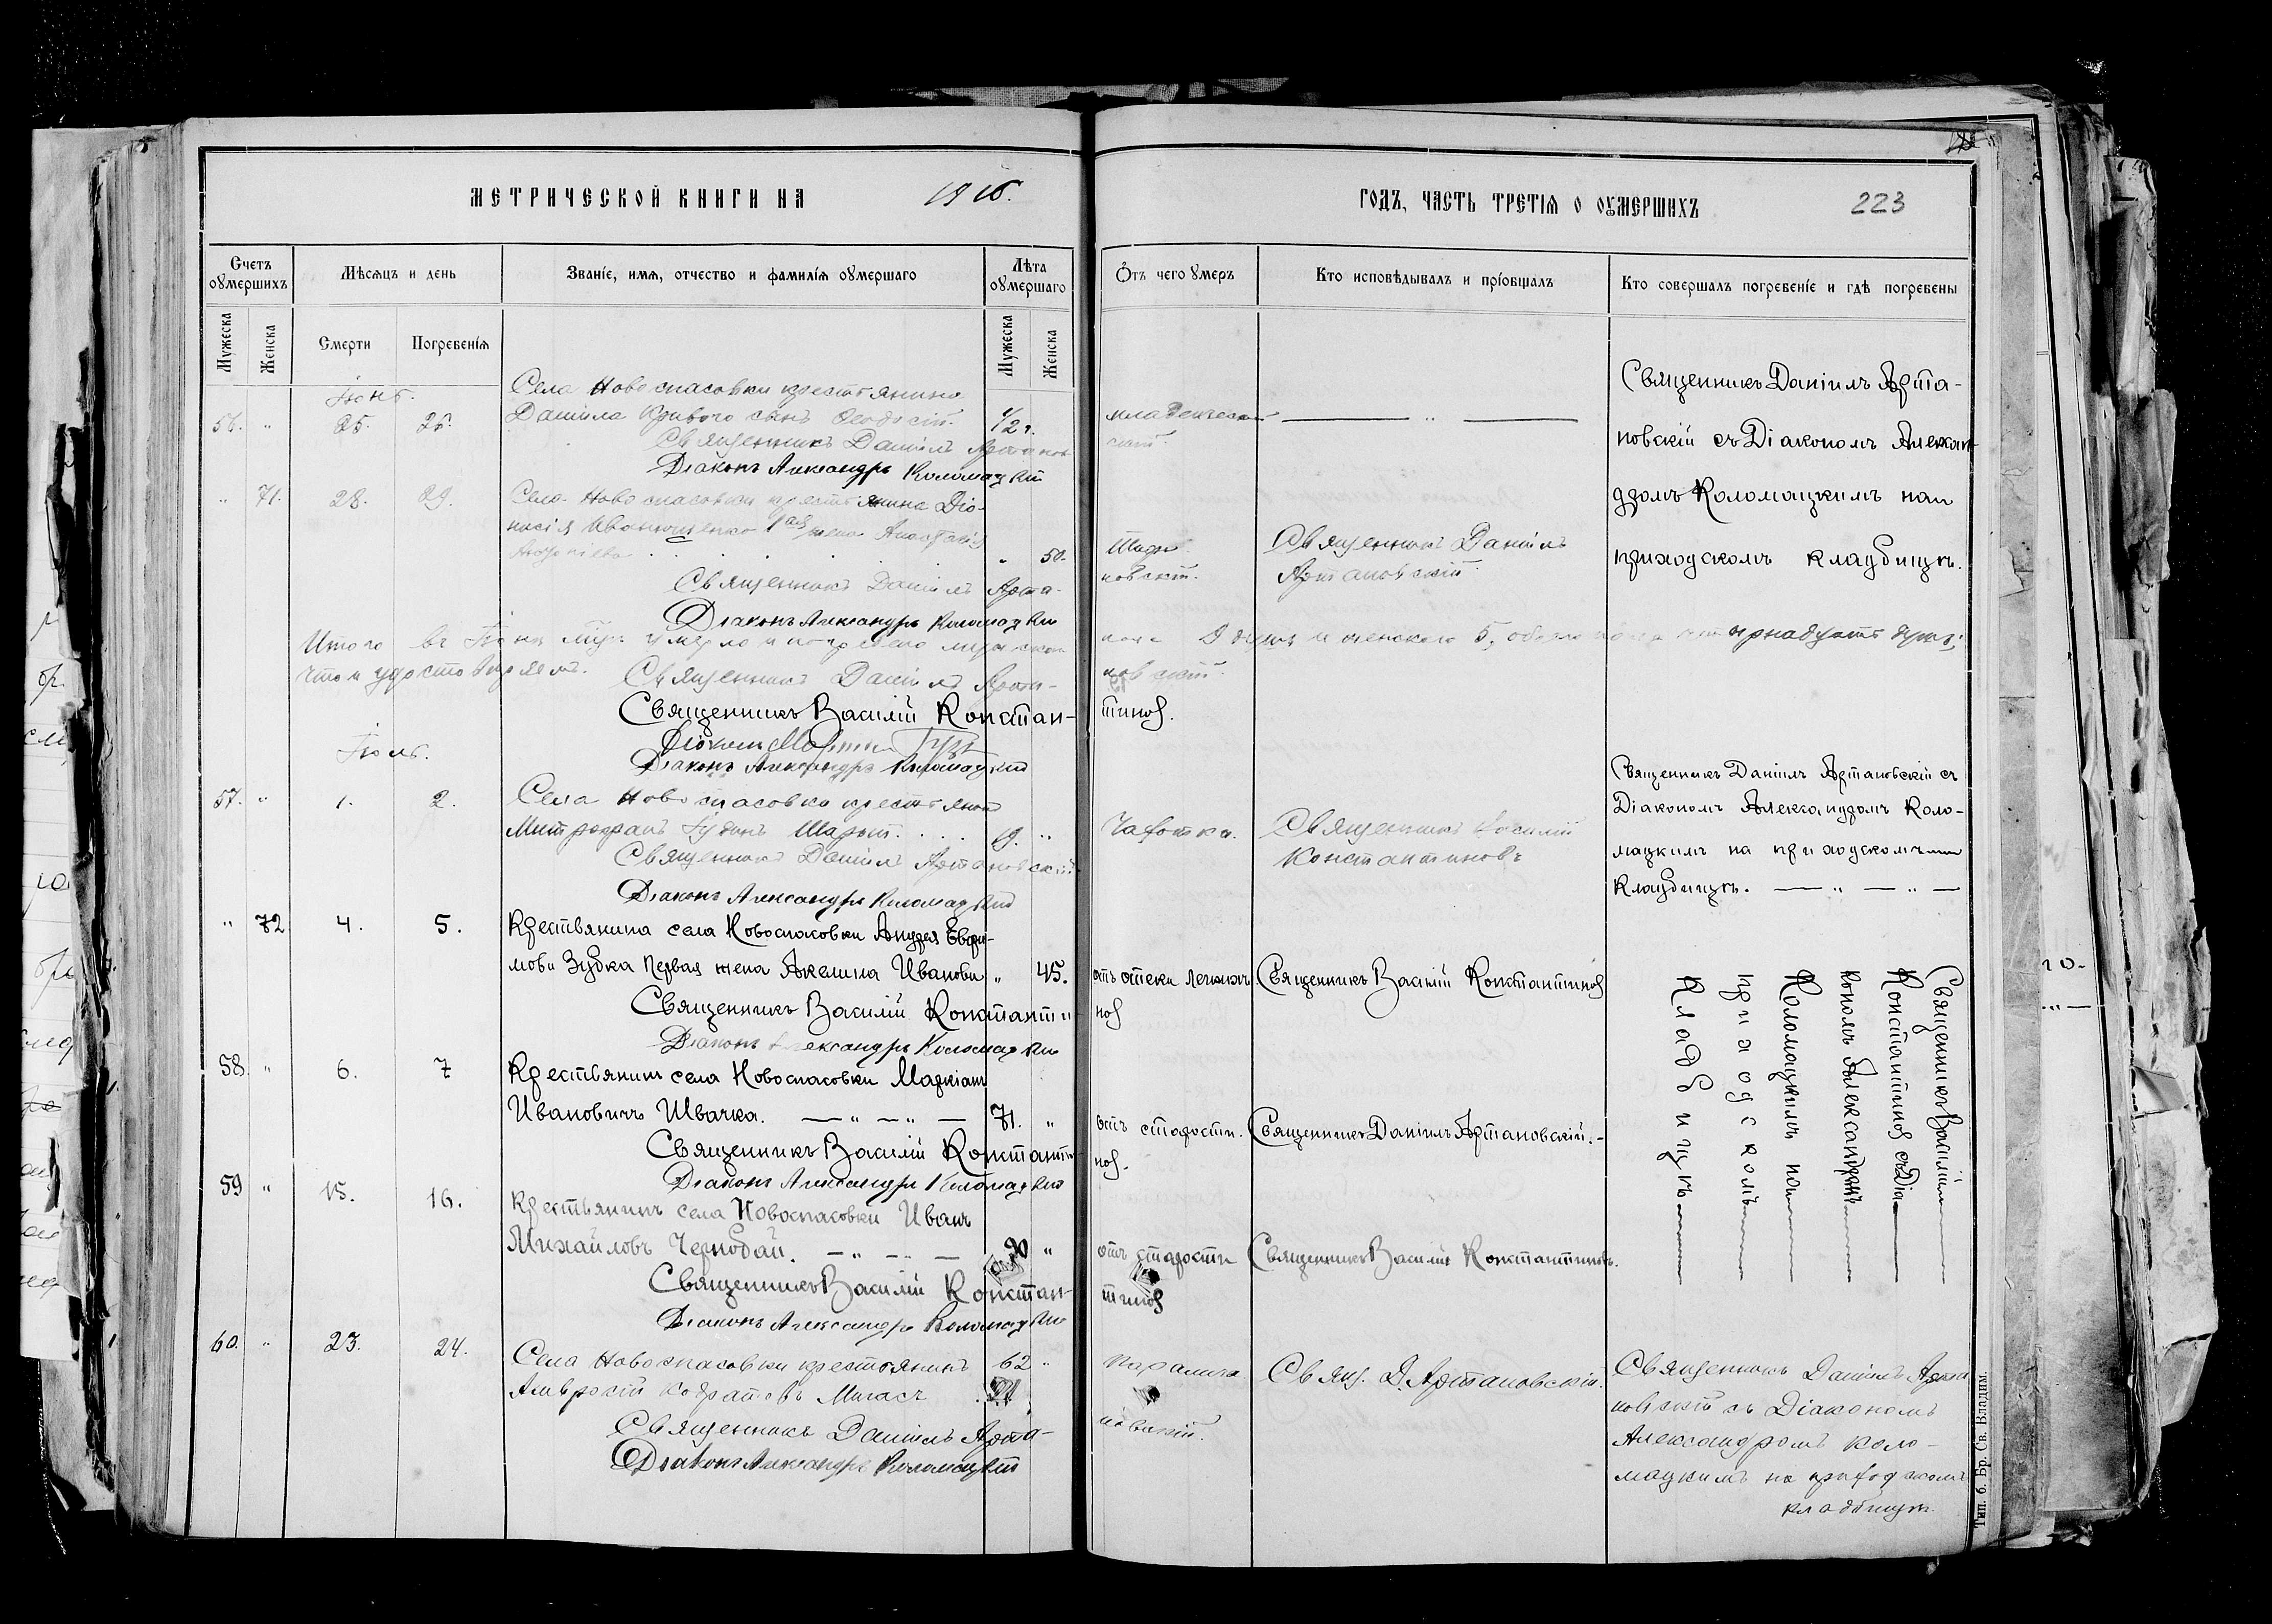 МЕТРИЧЕСКОЙ КНИГИ НА 1916.
ГОДЪ, ЧАСТЬ ТРЕТІЯ О ОУМЕРШИХЪ
223
Счетъ оумершихъ
Мѣсяцъ и день
Званіе, имя, отчество и фамилія оумершаго
Лѣта оумершаго
Отъ чего умеръ
Кто исповѣдывалъ и пріобщалъ
Кто совершалъ погребеніе и гдѣ погребены
Мужеска
Женска
Смерти
Погребенія
Мужеска
Женска
Іюнь.
Села Новоспасовки крестьянина
56. " 25. 26. Даніила Кривого сынъ Ѳеодосій. 1/2 г.
Священникъ Даніилъ Артанов
Діаконъ Александръ Коломацкій
" 71. 28. 29. Села Новоспасовки крестьянина Діо-
нисія жена Анастасія
" 50.
Священникъ Даніилъ
Артановскій
Священникъ Даніилъ Арта-
новскій.
Діаконъ Александръ Коломацкій
Священникъ Даніилъ Арта-
новскій съ Діакономъ Алексан-
дромъ Коломацкимъ на
приходскомъ кладбищѣ.
Итого въ Іюнѣ м-цѣ умерло и погребено мужеска
пола 9 душъ и женскаго 5, обоего пола четырнадцать душъ;
что и удостовѣряемъ. Священникъ Даніилъ Арта-
новскій.
Священникъ Василій Констан-
тиновъ.
Діаконъ Александръ Коломацкій
Іюль.
57. " 1. 2. Села Новоспасовки крестьянинъ
Митрофанъ Шарый. 19. "
Чахотка. Священникъ Василій
Константиновъ
Священникъ Даніилъ Артановскій
Діаконъ Александръ Коломацкій
Священникъ Даніилъ Артановскій съ
Діакономъ Александромъ Коло-
мацкимъ на приходскомъ
кладбищѣ. — " — " —
" 72 4. 5. Крестьянина села Новоспасовки Андрея Евфи-
мова Зубка первая жена Акелина Иванова " 45.
отъ отека легкихъ. Священникъ Василій Константиновъ
Священникъ Василій Константи-
новъ
Діаконъ Александръ Коломацкій
58. " 6. 7 Крестьянинъ села Новоспасовки Маркіанъ
Ивановичъ Швачка. — " — " — 71. "
отъ старости. Священникъ Даніилъ Артановскій. -
Священникъ Василій Константи-
новъ.
Діаконъ Александръ Коломацкій
Священникъ Василій
Константиновъ съ Діа-
кономъ Александромъ
Коломацкимъ на
приходскомъ
кладбищѣ
59 " 15. 16. Крестьянинъ села Новоспасовки Иванъ
Михайловъ Чернобай. — " — — 90 "
отъ старости Священникъ Василій Константиновъ.
Священникъ Василій Констан-
тиновъ
Діаконъ Александръ Коломацкій
60. " 23. 24. Села Новоспасовки крестьянинъ 62 "
Амвросій Кодратовъ Мигасъ
паралича Свящ. Д. Артановскій.
Священникъ Даніилъ Арта-
новскій.
Діаконъ Александръ Коломацкій
Священникъ Даніилъ Арта
новскій съ Діакономъ
Александромъ Коло-
мацкимъ на приходскомъ
кладбищѣ.
Тип. б. Бр. Св. Владим.